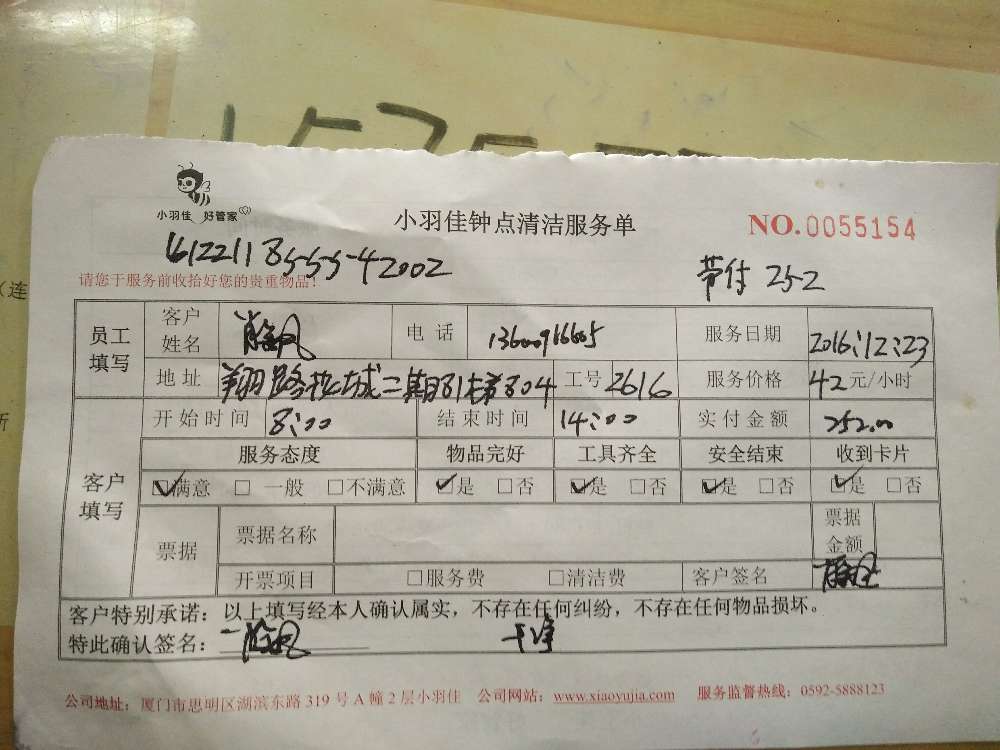 小羽佳 好管家
小羽佳钟点清洁服务单
NO.0055154
请您于服务前收拾好您的贵重物品!
带付 252
员工填写
客户姓名
电话 13600916605
服务日期 2016:12:23
地址
工号 2616
服务价格 42元/小时
客户填写
开始时间 8:00
结束时间 14:00
实付金额 252.00
服务态度 物品完好 工具齐全 安全结束 收到卡片
☑满意 □一般 □不满意 ☑是 □否 ☑是 □否 ☑是 □否 ☑是 □否
票据
票据名称
票据金额
开票项目 □服务费 □清洁费 客户签名
客户特别承诺:以上填写经本人确认属实,不存在任何纠纷,不存在任何物品损坏。
特此确认签名:
干净
公司地址:厦门市思明区湖滨东路319号A幢2层小羽佳 公司网站:www.xiaoyujia.com 服务监督热线:0592-5888123